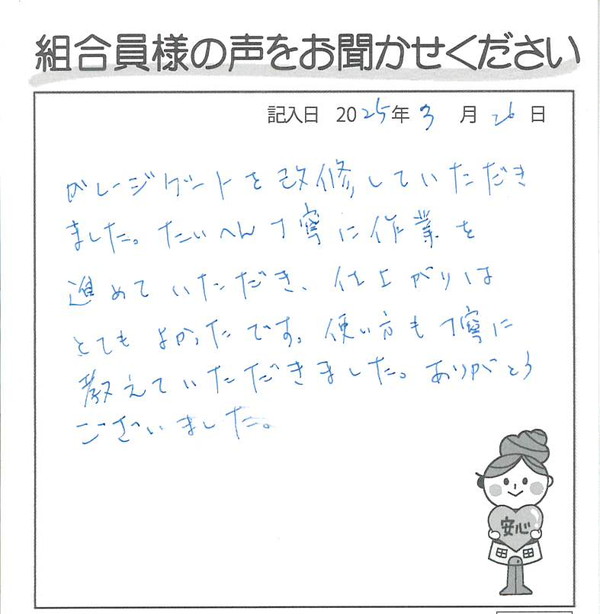 組合員様の声をお聞かせください
記入日 2025年 3 月 26 日
ガレージゲートを改修していただき
ました。たいへん丁寧に作業を
進めていただき、仕上がりは
とてもよかったです。使い方も丁寧に
教えていただきました。ありがとう
ございました。
安心